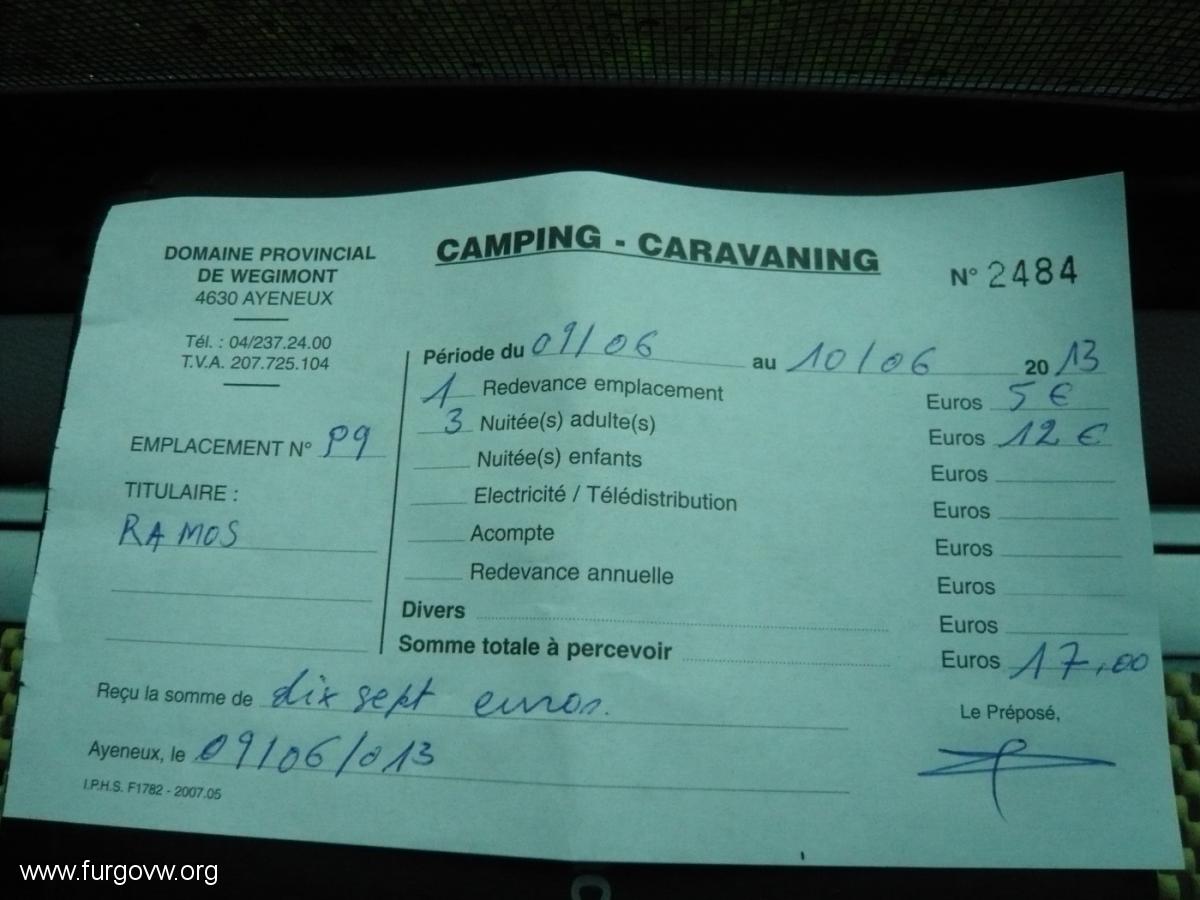 CAMPING - CARAVANING
N° 2484
DOMAINE PROVINCIAL
DE WEGIMONT
4630 AYENEUX
Tél. : 04/237.24.00
T.V.A. 207.725.104
EMPLACEMENT N° P9
TITULAIRE :
RAMOS
Période du 09/06 au 10/06 2013
1 Redevance emplacement Euros 5 €
3 Nuitée(s) adulte(s) Euros 12 €
Nuitée(s) enfants Euros
Electricité / Télédistribution Euros
Acompte Euros
Redevance annuelle Euros
Divers Euros
Somme totale à percevoir Euros 17,00
Reçu la somme de dix sept euros.
Le Préposé,
Ayeneux, le 09/06/013
I.P.H.S. F1782 - 2007.05
www.furgovw.org